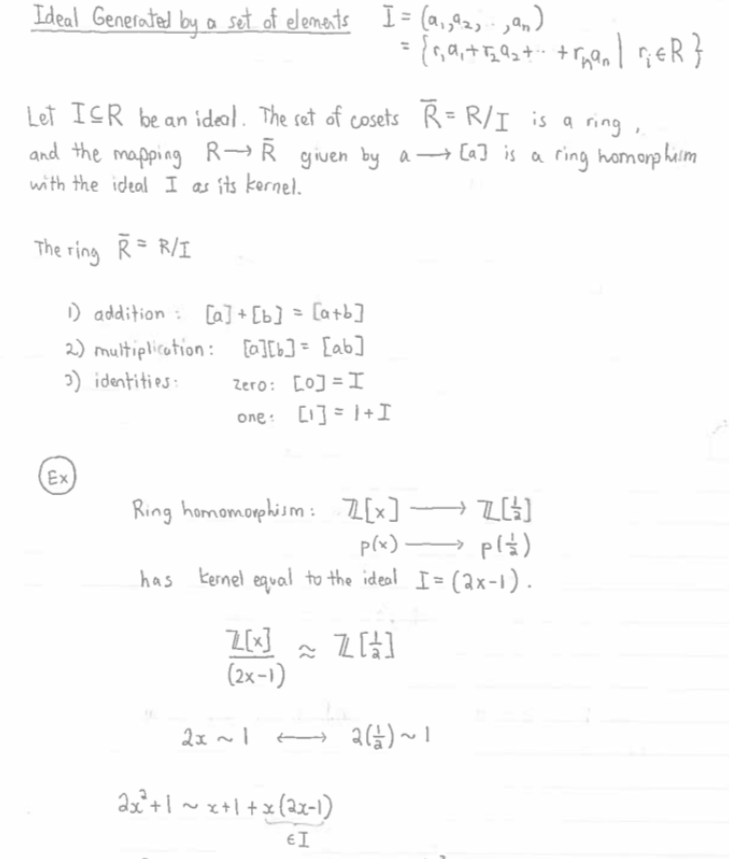 Ideal Generated by a set of elements I = (a₁,a₂,..,aₙ)
= {r₁a₁+r₂a₂+··+rₙaₙ | rᵢ∈R}
Let I⊆R be an ideal. The set of cosets R̄ = R/I is a ring,
and the mapping R→R̄ given by a→[a] is a ring homorphism
with the ideal I as its kernel.
The ring R̄ = R/I
1) addition: [a]+[b] = [a+b]
2) multiplication: [a][b] = [ab]
3) identities: zero: [0] = I
one: [1] = 1+I
Ex
Ring homomorphism: ℤ[x] → ℤ[1/2]
p(x) → p(1/2)
has kernel equal to the ideal I = (2x-1).
ℤ[x]/(2x-1) ≈ ℤ[1/2]
2x ~ 1 ⟷ 2(1/2) ~ 1
2x²+1 ~ x+1+x(2x-1)
∈I